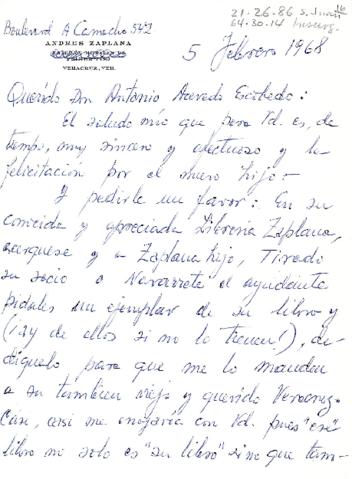 21-26-86 S. Juan
64.30.14 Insurg.
Boulevard A Camacho 542
ANDRES ZAPLANA
VERACRUZ, VER.
5 Febrero 1968
Querido Don Antonio Acevedo Escobedo:
El saludo mío que para Vd. es, de
tiempo, muy sincero y afectuoso y la
felicitación por el nuevo hijo.-
Y pedirle un favor: En su
conocida y apreciada Librería Zaplana,
acerquese y a Zaplana hijo, Tirado
su socio o Navarrete el ayudante
pidales un ejemplar de su libro y
(¡ay de ellos si no lo tienen!), de-
diquelo para que me lo manden
a su tambien viejo y querido Veracruz.
Casi, casi me enojaría con Vd. pues "ese"
libro no solo es "su libro" si no que tam-